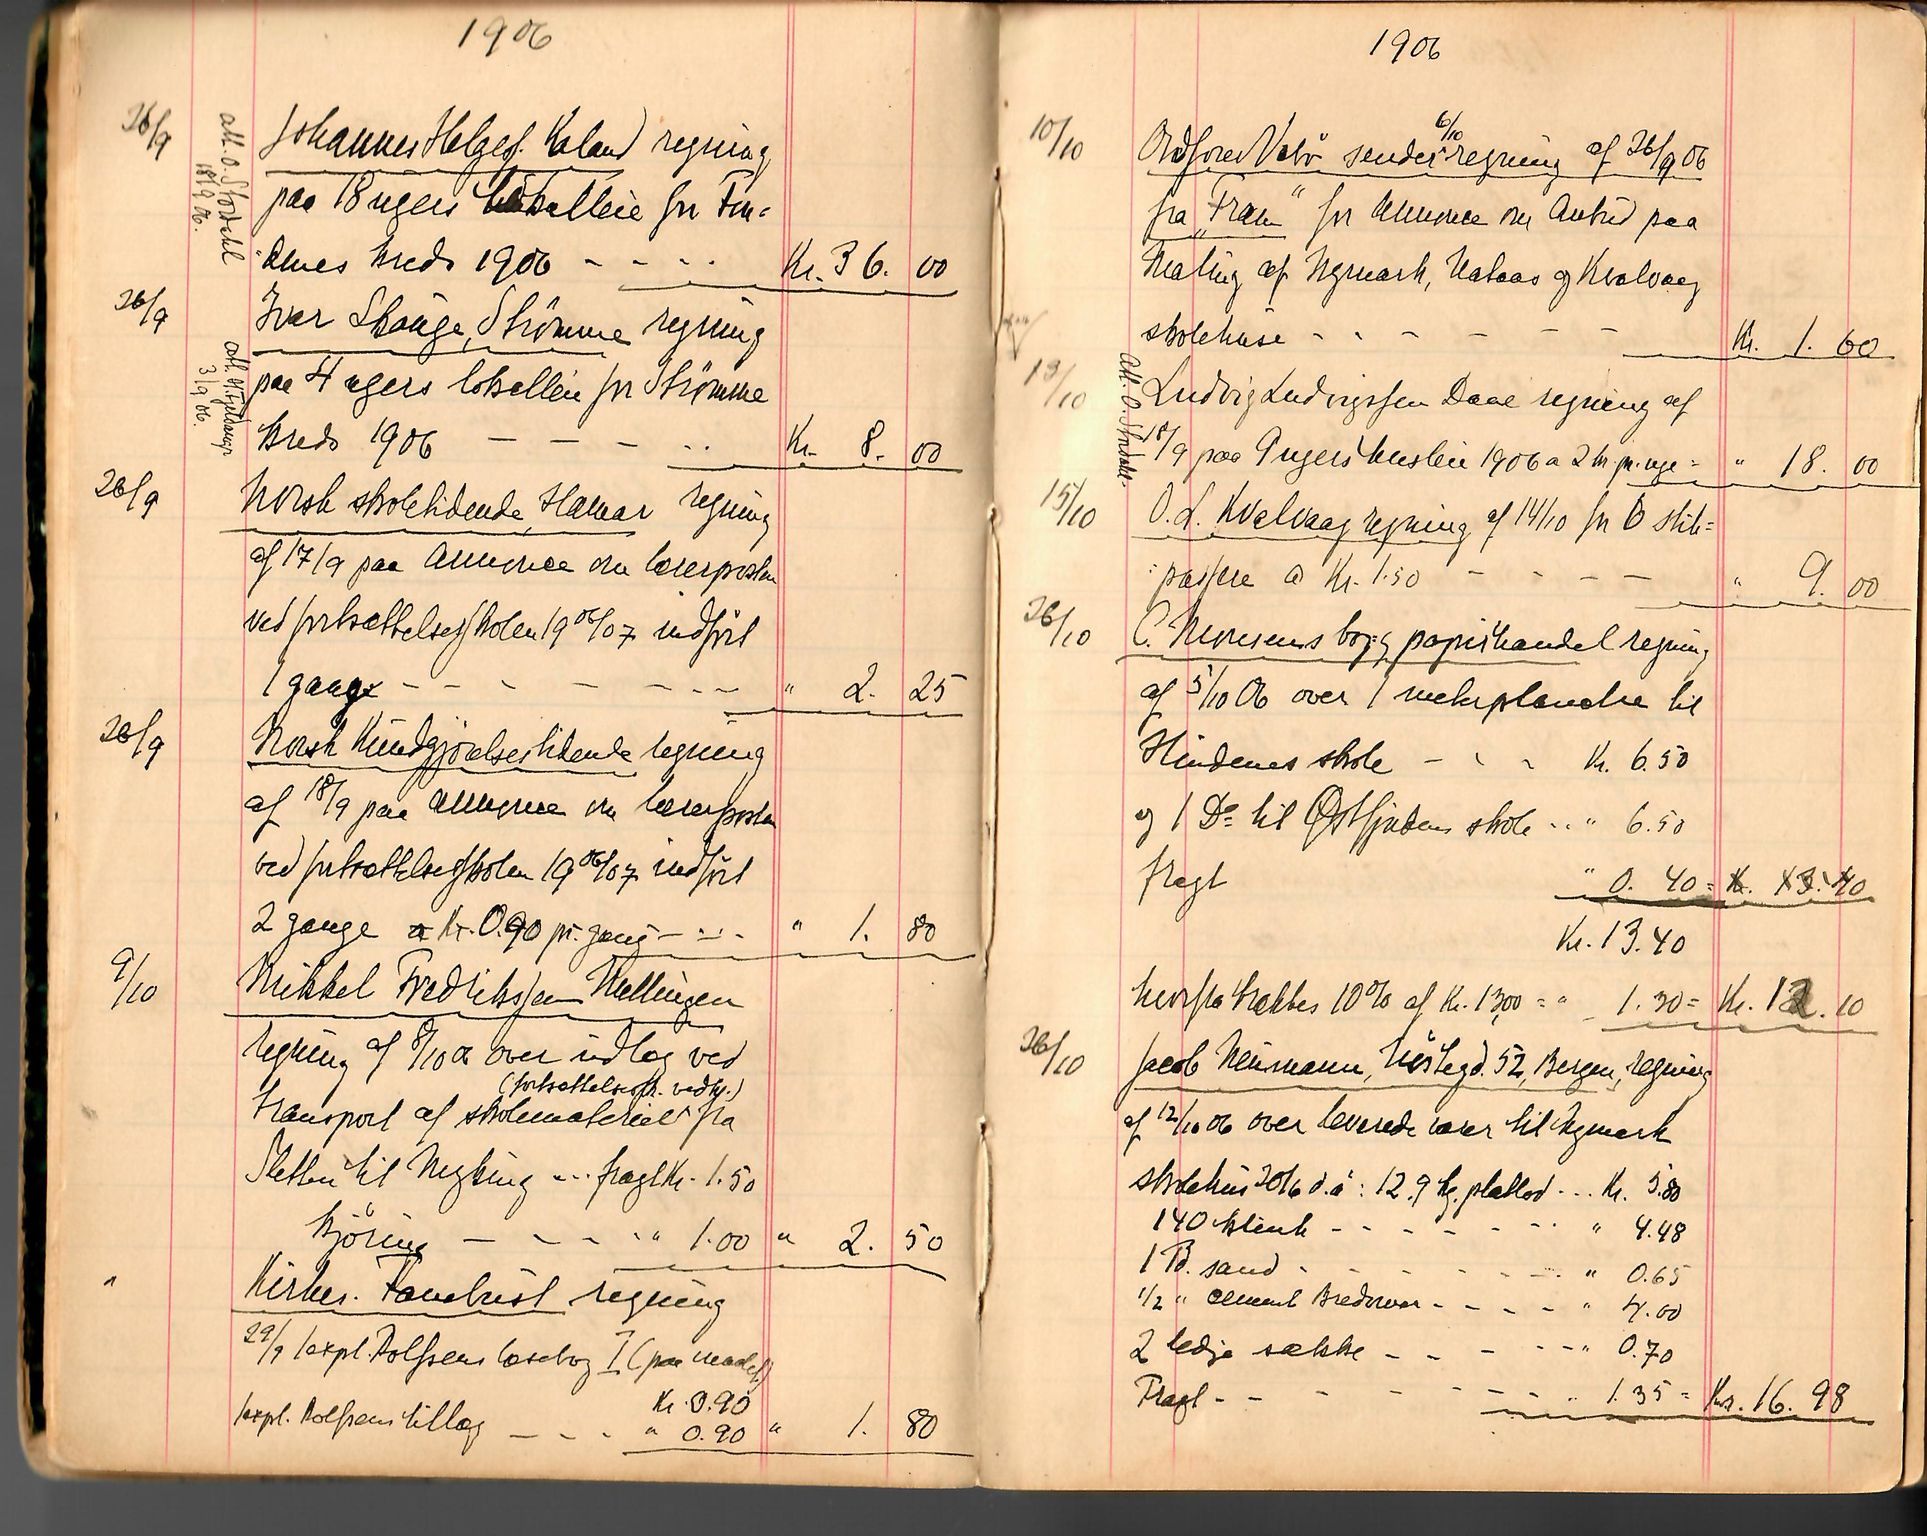 1906
26/9
att. O. Stordahl
18/9 06.
Johannes Helges. Kaland regning
paa 18 ugers lokalleie for Fin-
denes kreds 1906 - - - - Kr. 36. 00
26/9
3/9 06.
Ivar Skauge, Strømme regning
paa 4 ugers lokalleie for Strømme
kreds 1906 - - - - Kr. 8. 00
26/9
Norsk skoletidende, Hamar regning
af 17/9 paa annonce om lærerposten
ved fortsættelsesskolen 1906/07 indført
1 gang - - - - - - - " 2. 25
26/9
Norsk Kundgjörelsestidende regning
af 18/9 paa annonce om lærerposten
ved fortsættelsesskolen 1906/07 indført
2 gange a Kr. 0.90 pr. gang - - - - " 1. 80
9/10
Mikkel Fredrikssen Mellingen
regning af 8/10 06 over udlæg ved
(fortsættelsessk. vedk.)
transport af skolemateriel fra
Sletten til Nyking ... fragt Kr. 1.50
kjöring - - - - " 1.00 " 2. 50
"
Kirkes. Tombrust regning
29/9 1 expl. Rolfsens læsebog I (paa maalet)
Kr. 0.90
1 expl. Rolfsens tillæg - - - - " 0.90 " 1. 80
1906
10/10
6/10
Ordfører Valö sender regning af 26/9 06
fra "Fram" for annonce om anbud paa
maling af Nymark, Nataas og Kvalvaag
skolehuse - - - - - - Kr. 1. 60
13/10
att. O. Stordahl.
Ludvig Ludvigssen Daae regning af
18/9 paa 9 ugers husleie 1906 a 2 kr. pr. uge = " 18. 00
15/10
O. L. Kvalvaag regning af 14/10 for 6 stik-
passere a Kr. 1.50 - - - - " 9. 00
26/10
C. Monsens bog & papirhandel regning
af 5/10 06 over 1 meterplanche til
Hindenes skole - - - Kr. 6.50
og 1 Do til Østfjordens skole .. " 6.50
fragt " 0. 40 = Kr. 13.40
Kr. 13.40
hvorfra trækkes 10% af Kr. 13,00 = " 1.30 = Kr. 12.10
26/10
Jacob Neumann, Nöstegd. 52, Bergen, regning
af 12/10 06 over leverede varer til Nymark
skolehus 20/6 d.å: 12.9 kg. platlod ... Kr. 5.80
140 klink - - - - - - " 4.48
1 Td. sand - - - - - - " 0.65
1/2 " cement Bredevar - - - - " 4.00
2 ledje sække - - - - - " 0.70
Fragt - - - - - - - " 1.35 = Kr. 16. 98